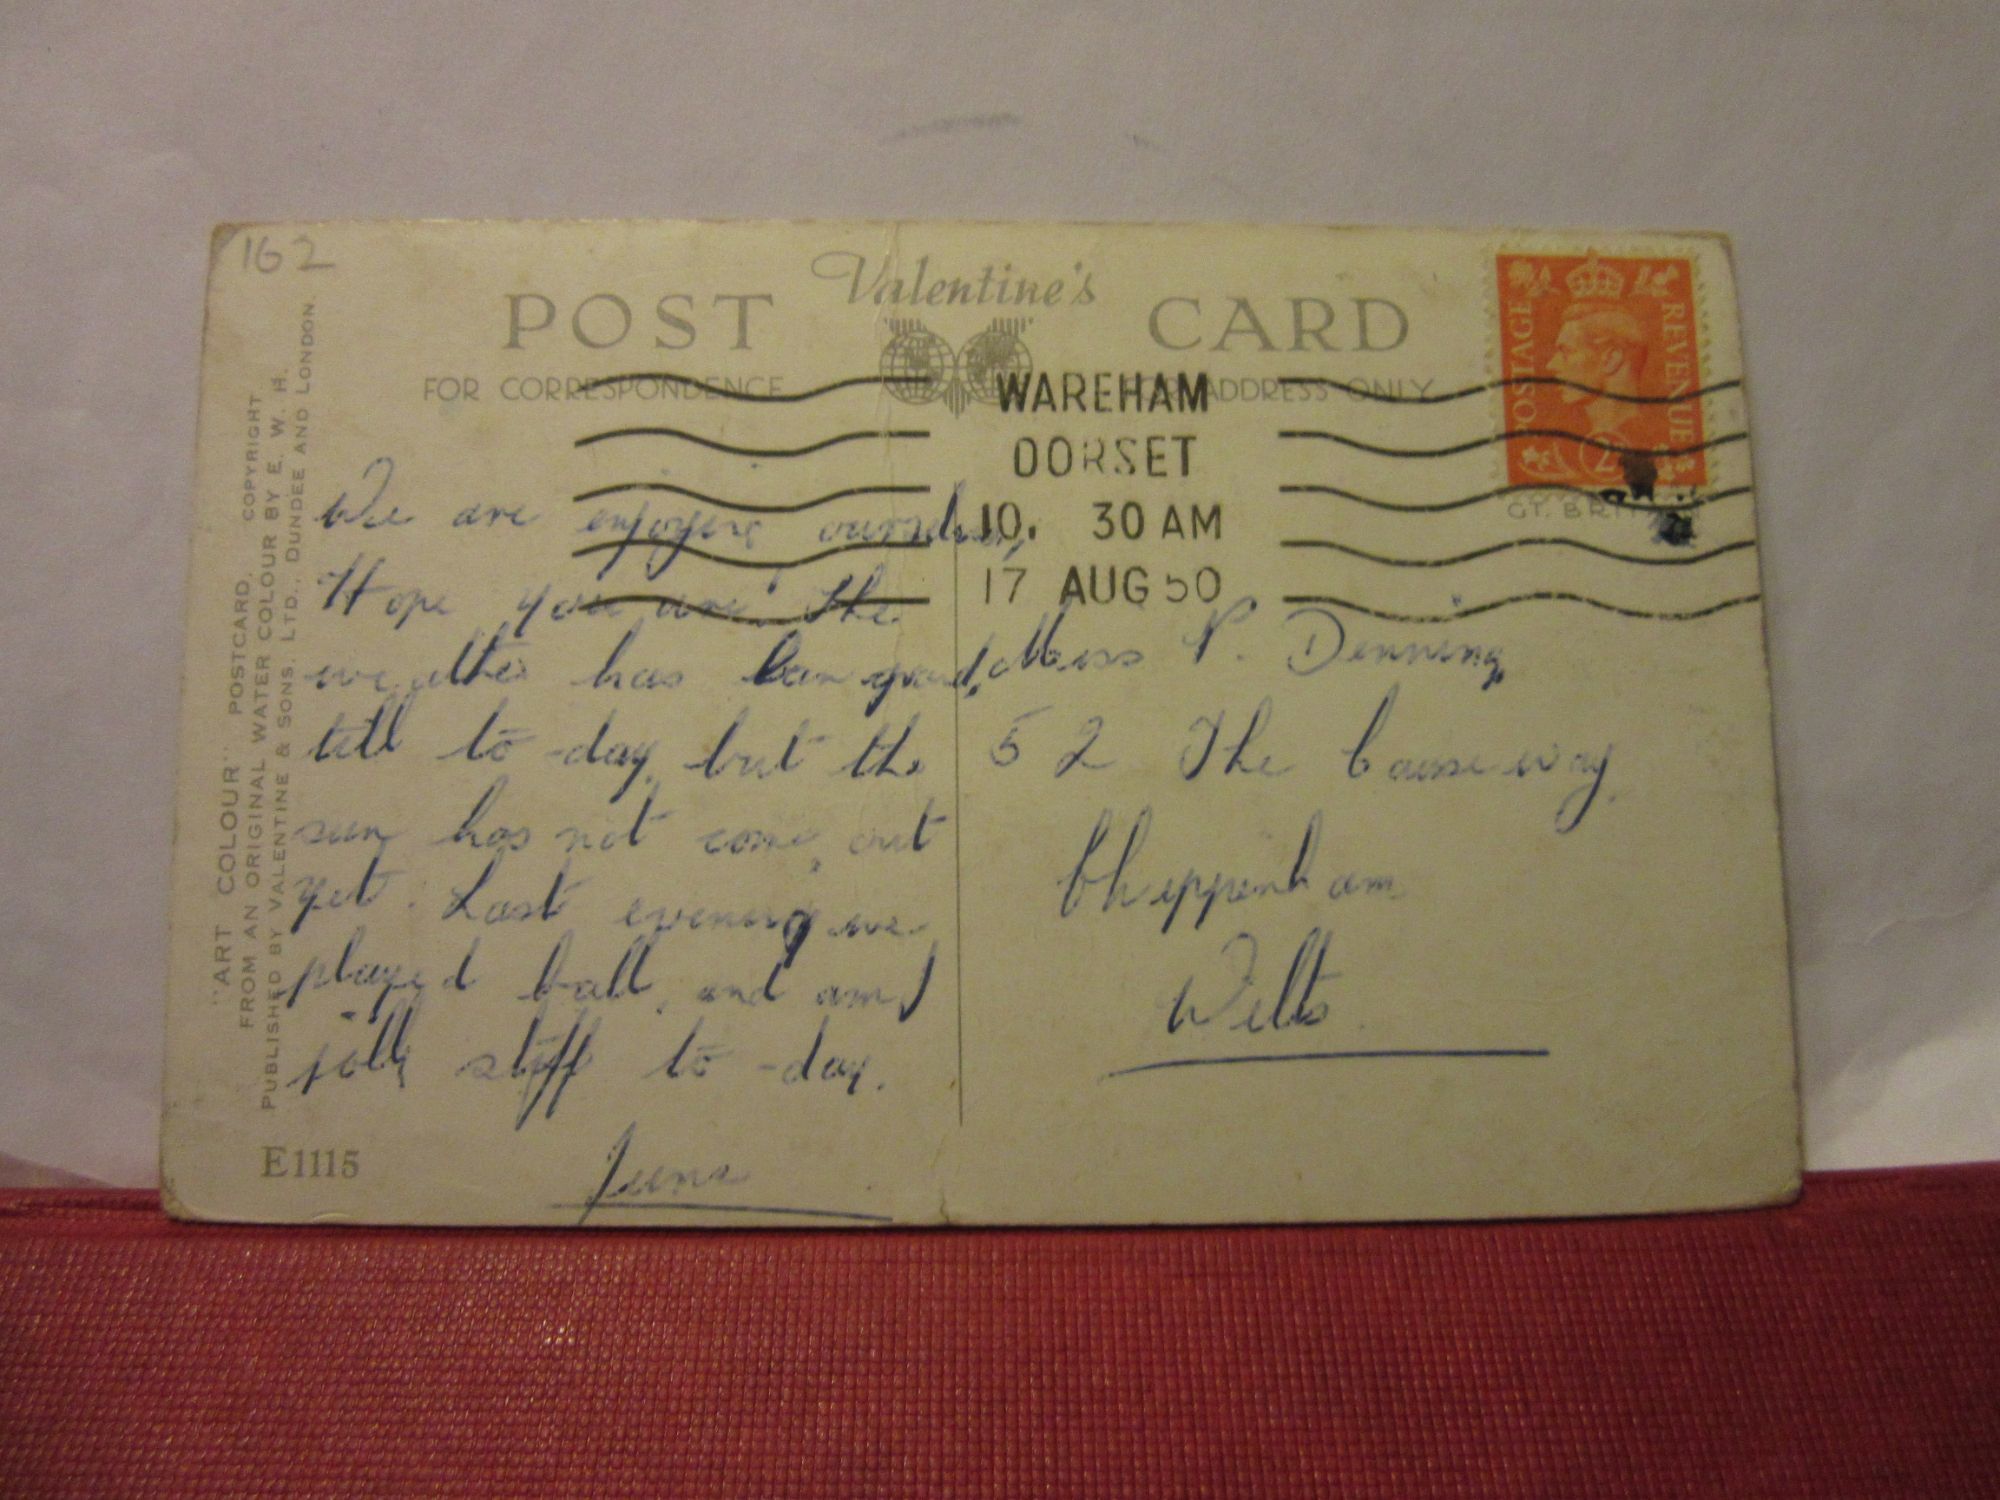 162
Valentine's
POST CARD
FOR CORRESPONDENCE
ADDRESS ONLY
POSTAGE
REVENUE
2
GT. BRIT
WAREHAM
DORSET
10. 30 AM
17 AUG 50
"ART COLOUR" POSTCARD. COPYRIGHT
FROM AN ORIGINAL WATER COLOUR BY E. W. H.
PUBLISHED BY VALENTINE & SONS. LTD., DUNDEE AND LONDON.
We are enjoying ourselves,
Hope you are. The
weather has been grand,
till to-day, but the
sun has not come out
yet. Last evening we
played ball, and am I
jolly stiff to-day.
June
Miss P. Denning,
52 The Causeway,
Chippenham
Wilts.
E1115